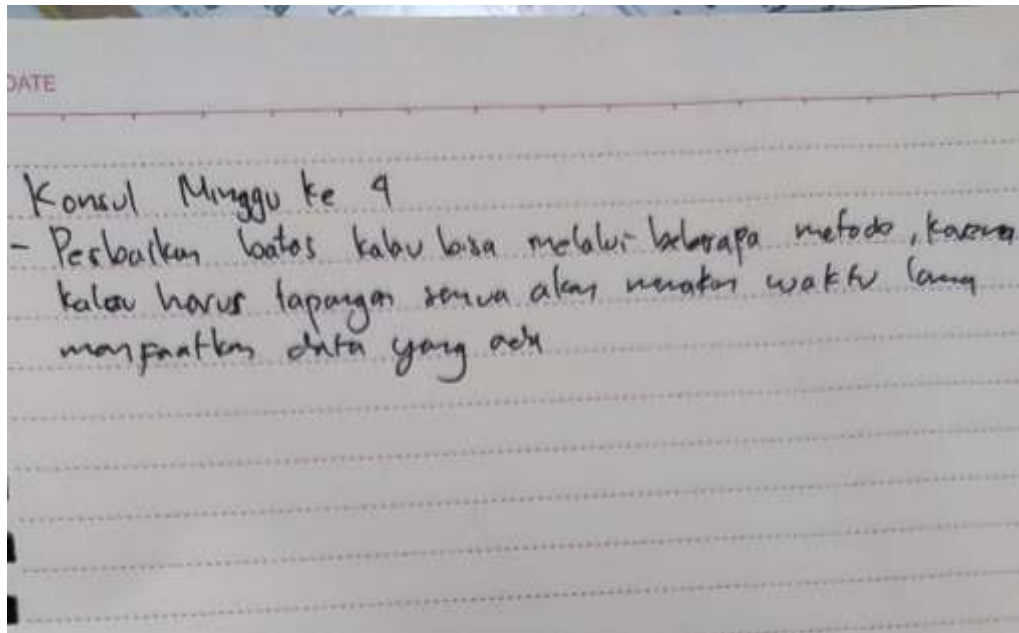 DATE
Konsul Minggu ke 4
- Perbaikan batas kalau bisa melalui beberapa metode, karena
kalau harus lapangan semua akan memakan waktu lama
manfaatkan data yang ada